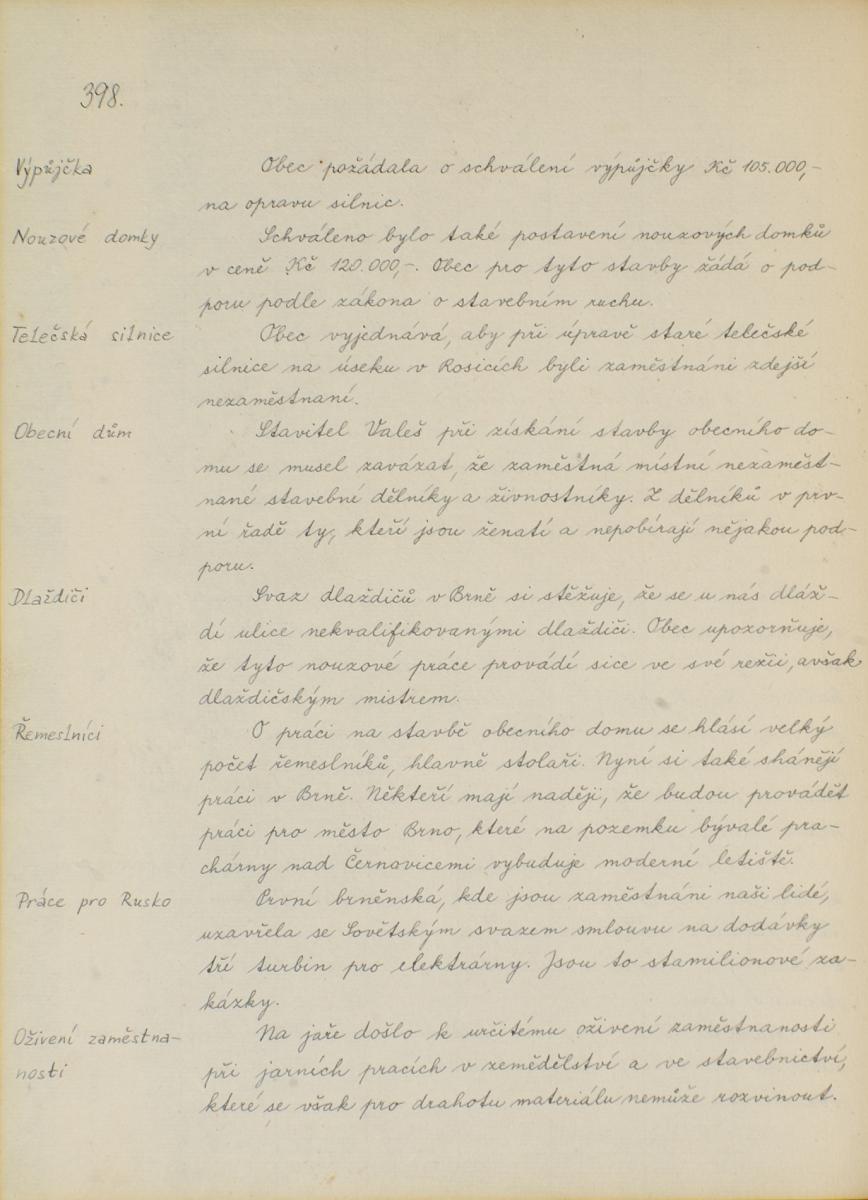 398.
Výpůjčka
Obec požádala o schválení výpůjčky Kč 105.000,-
na opravu silnic.
Nouzové domky
Schváleno bylo také postavení nouzových domků
v ceně Kč 120.000,-. Obec pro tyto stavby žádá o pod-
poru podle zákona o stavebním ruchu.
Telečská silnice
Obec vyjednává, aby při úpravě staré telečské
silnice na úseku v Rosicích byli zaměstnáni zdejší
nezaměstnaní.
Obecní dům
Stavitel Valeš při získání stavby obecního do-
mu se musel zavázat, že zaměstná místní nezaměst-
nané stavební dělníky a živnostníky. Z dělníků v prv-
ní řadě ty, kteří jsou ženatí a nepobírají nějakou pod-
poru.
Dlaždiči
Svaz dlaždičů v Brně si stěžuje, že se u nás dláž-
dí ulice nekvalifikovanými dlaždiči. Obec upozorňuje,
že tyto nouzové práce provádí sice ve své režii, avšak
dlaždičským mistrem.
Řemeslníci
O práci na stavbě obecního domu se hlásí velký
počet řemeslníků, hlavně stolaři. Nyní si také shánějí
práci v Brně. Někteří mají naději, že budou provádět
práci pro město Brno, které na pozemku bývalé pra-
chárny nad Černovicemi vybuduje moderní letiště.
Práce pro Rusko
První brněnská, kde jsou zaměstnáni naši lidé,
uzavřela se Sovětským svazem smlouvu na dodávky
tří turbin pro elektrárny. Jsou to stamilionové za-
kázky.
Oživení zaměstna-
nosti
Na jaře došlo k určitému oživení zaměstnanosti
při jarních pracích v zemědělství a ve stavebnictví,
které se však pro drahotu materiálu nemůže rozvinout.